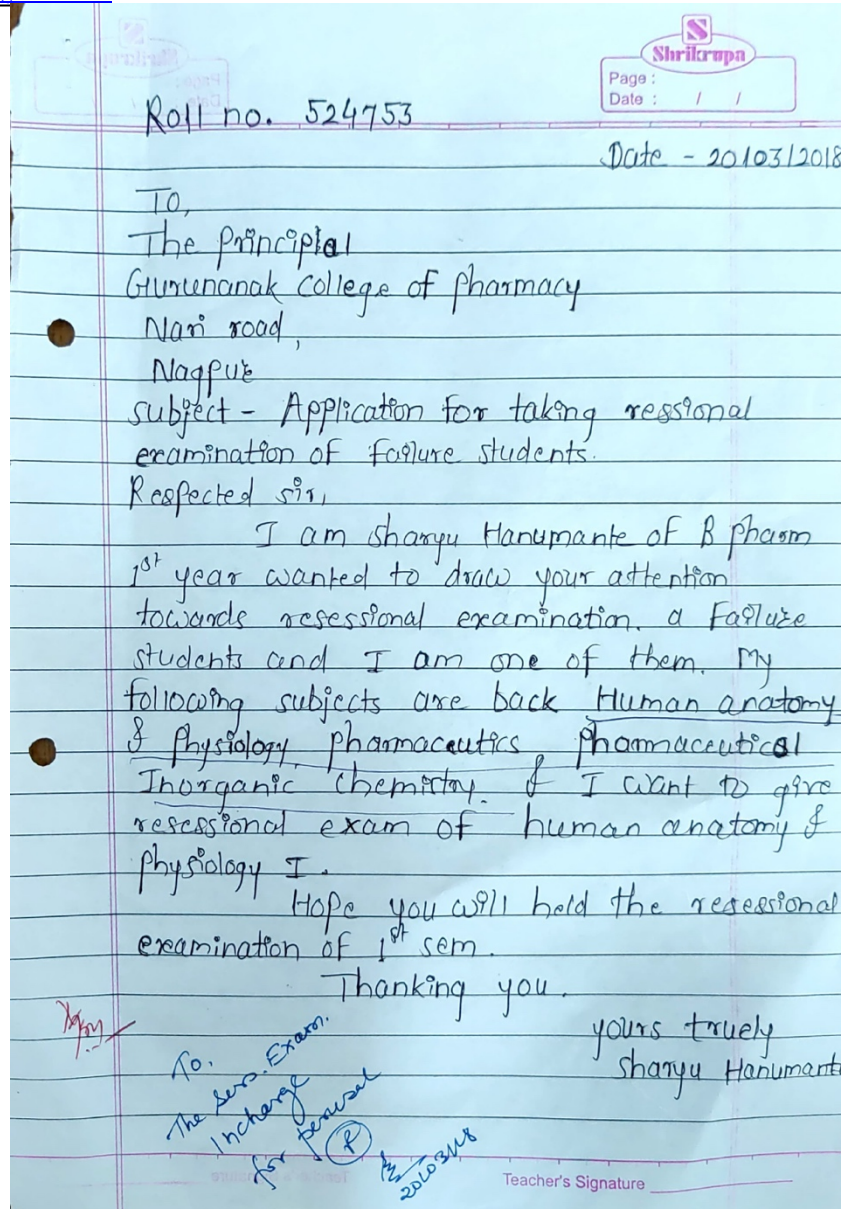 Shrikrupa
Page :
Date :    /    /
Roll no. 524753
Date - 20/03/2018
To,
The Principlal
Gurunanak College of pharmacy
Nari road,
Nagpur
subject - Application for taking ressional
examination of failure students.
Respected sir,
I am Sharyu Hanumante of B pharm
1st year wanted to draw your attention
towards resessional examination. a failure
students and I am one of them. My
following subjects are back Human anatomy
& Physiology, pharmaceutics, Pharmaceutical
Inorganic Chemistry. & I want to give
resessional exam of human anatomy &
physiology I.
Hope you will held the resessional
examination of 1st sem.
Thanking you.
yours truely
Sharyu Hanumant
To,
The Sess. Exam.
Incharge
for perusal
P
20/03/18
Teacher's Signature